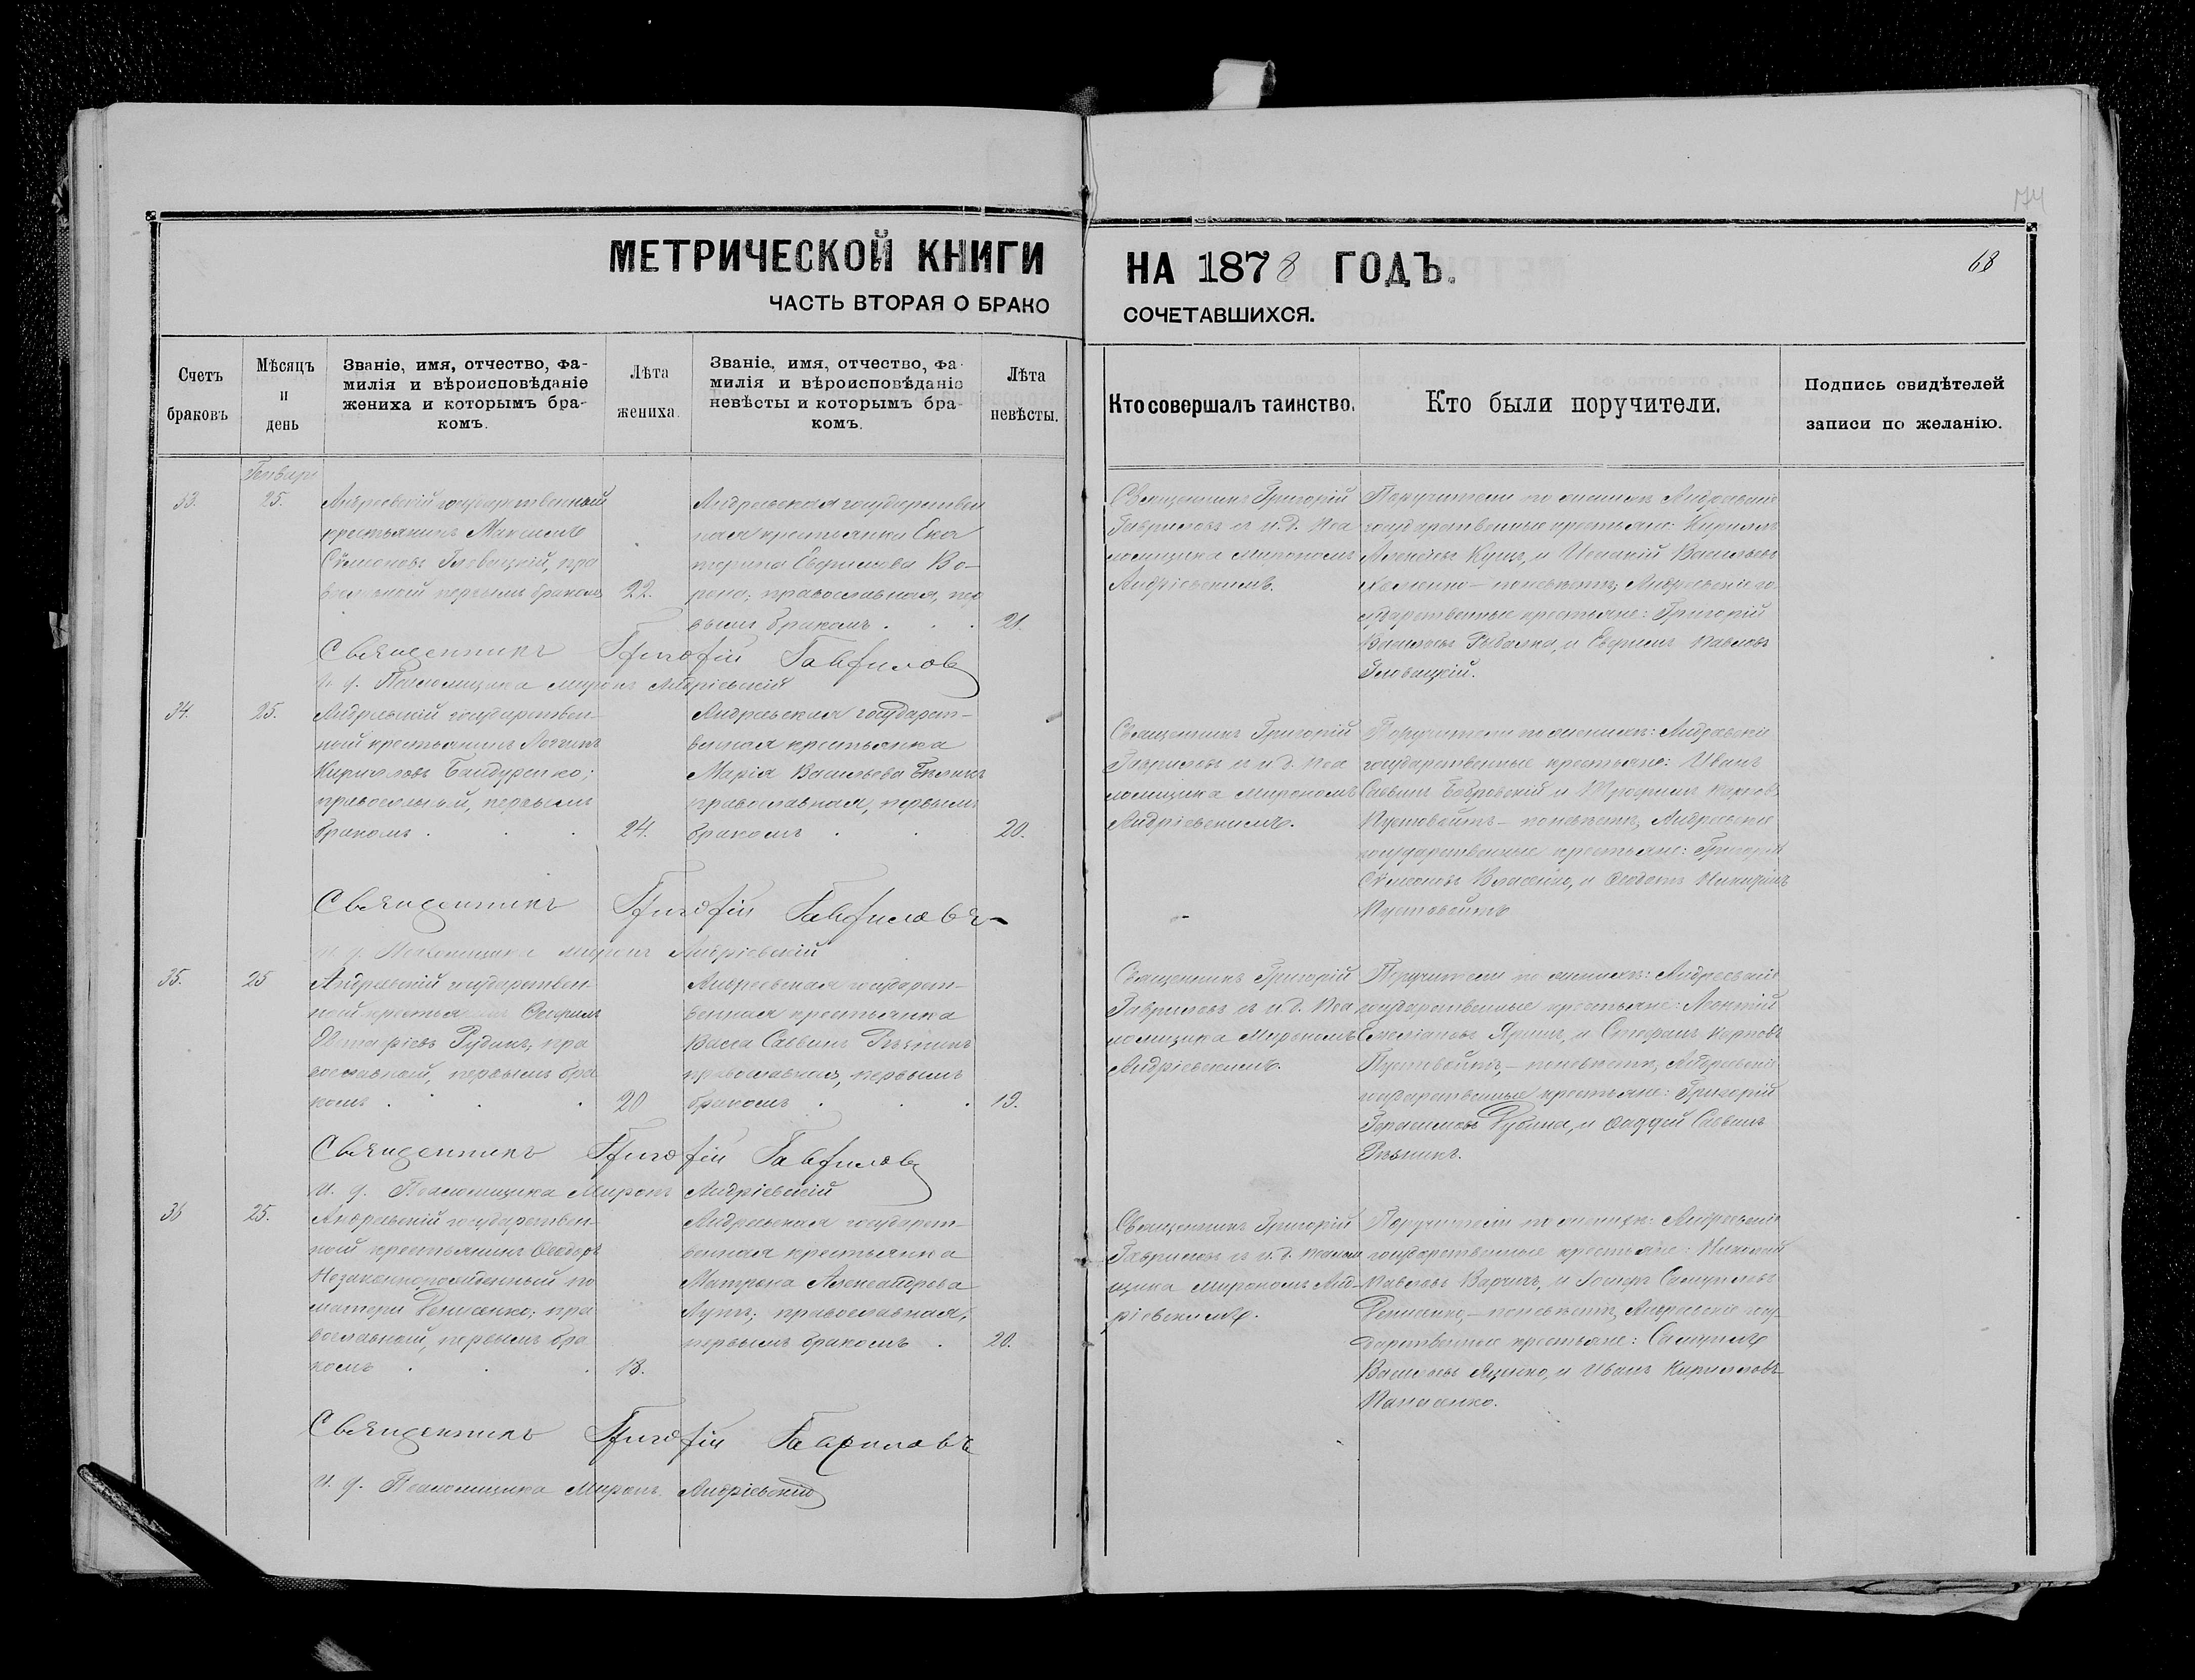 174
МЕТРИЧЕСКОЙ КНИГИ
НА 1878 ГОДЪ.
68
ЧАСТЬ ВТОРАЯ О БРАКО
СОЧЕТАВШИХСЯ.
Счетъ
браковъ
Мѣсяцъ
и
день
Званіе, имя, отчество, фа-
милія и вѣроисповѣданіе
жениха и которымъ бра-
комъ.
Лѣта
жениха.
Званіе, имя, отчество, фа-
милія и вѣроисповѣданіе
невѣсты и которымъ бра-
комъ.
Лѣта
невѣсты.
Кто совершалъ таинство.
Кто были поручители.
Подпись свидѣтелей
записи по желанію.
Генварь
33.
25.
Андреевскій государственный
крестьянинъ Максимъ
Сѵмеоновъ Гловацкій, пра
вославный первымъ бракомъ
22.
Андреевская государствен
ная крестьянка Ека
терина Ефремова Во-
рона; православная, пер
вымъ бракомъ . . .
21.
Священникъ Григорій
Гавриловъ съ и. д. Пса
ломщика Мирономъ
Андріевскимъ.
Поручители по женихѣ Андреевские
государственные крестьяне: Кириллъ
Васильевъ
по невѣстѣ; Андреевскіе го-
сударственные крестьяне: Григорій
Васильевъ Рыбалка, и Ефремъ Павловъ
Гловацкій.
Священникъ Григорій Гавриловъ
И. д. Псаломщика Миронъ Андріевскій
34.
25.
Андреевскій государствен-
ный крестьянинъ Логгинъ
Кирилловъ Бандуренко;
православный, первымъ
бракомъ . . .
24.
Андреевская государст-
венная крестьянка
Марія Васильева
православная, первымъ
бракомъ . .
20.
Священникъ Григорій
Гавриловъ съ и. д. Пса
ломщика Мирономъ
Андріевскимъ.
Поручители по женихѣ: Андреевскіе
государственные крестьяне: Иванъ
Саввинъ Бобровскій и Трофимъ Карповъ
Пустовойтъ – по невѣстѣ, Андреевские
государственные крестьяне: Григорій
Сѵмеоновъ Власенко, и Ѳеодотъ
Пустовойтъ
Священникъ Григорій Гавриловъ
и. д. Псаломщика Миронъ Андріевскій
35.
25
Андреевскій государствен-
ный крестьянинъ
Рудикъ, пра
вославный, первымъ бра
комъ . . .
20
Андреевская государст-
венная крестьянка
Васса Саввина
православная, первымъ
бракомъ . . .
19.
Священникъ Григорій
Гавриловъ съ и. д. Пса
ломщика Мирономъ
Андріевскимъ.
Поручители по женихѣ: Андреевскіе
государственные крестьяне: Леонтій
и Стефанъ Карповъ
Пустовойтъ, – по невѣстѣ, Андреевскіе
государственные крестьяне: Григорій
Герасимовъ и Ѳаддей Саввинъ
Священникъ Григорій Гавриловъ
И. д. Псаломщика Миронъ Андріевскій
36
25.
Андреевскій государствен-
ный крестьянинъ Ѳеодоръ
Незаконнорожденный по
матери Денисенко; пра
вославный, первымъ бра
комъ . . .
18.
Андреевская государст-
венная крестьянка
Матрона Александрова
Лутъ; православная,
первымъ бракомъ .
20.
Священникъ Григорій
Гавриловъ съ и. д. Псалом
щика Мирономъ Анд-
ріевскимъ.
Поручители по женихѣ: Андреевскіе
государственные крестьяне: Николай
Павловъ и Самуиловъ
Денисенко, – по невѣстѣ, Андреевскіе госу-
дарственные крестьяне: Самуилъ
Васильевъ Яценко, и Иванъ Кирилловъ
Панасенко.
Священникъ Григорій Гавриловъ
И. д. Псаломщика Миронъ Андріевскій